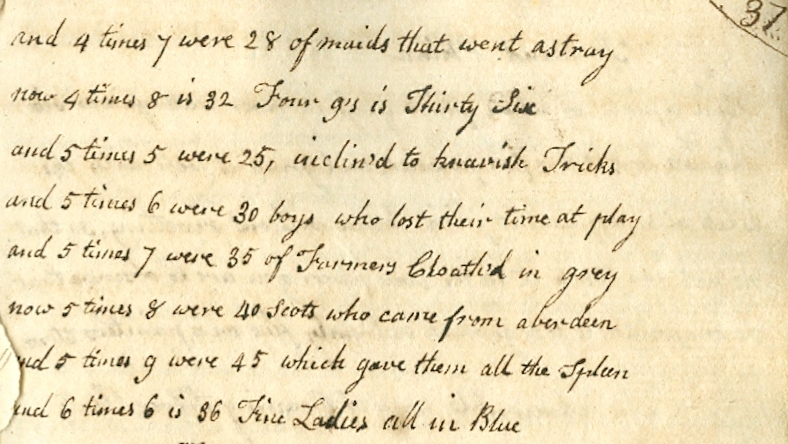 37
and 4 times 7 were 28 of maids that went astray
now 4 times 8 is 32 Four 9s is Thirty Six
and 5 times 5 were 25, inclin'd to knavish Tricks
and 5 times 6 were 30 boys who lost their time at play
and 5 times 7 were 35 of Farmers Cloath'd in grey
now 5 times 8 were 40 Scots who came from aberdeen
and 5 times 9 were 45 which gave them all the Spleen
and 6 times 6 is 36 Fine Ladies all in Blue